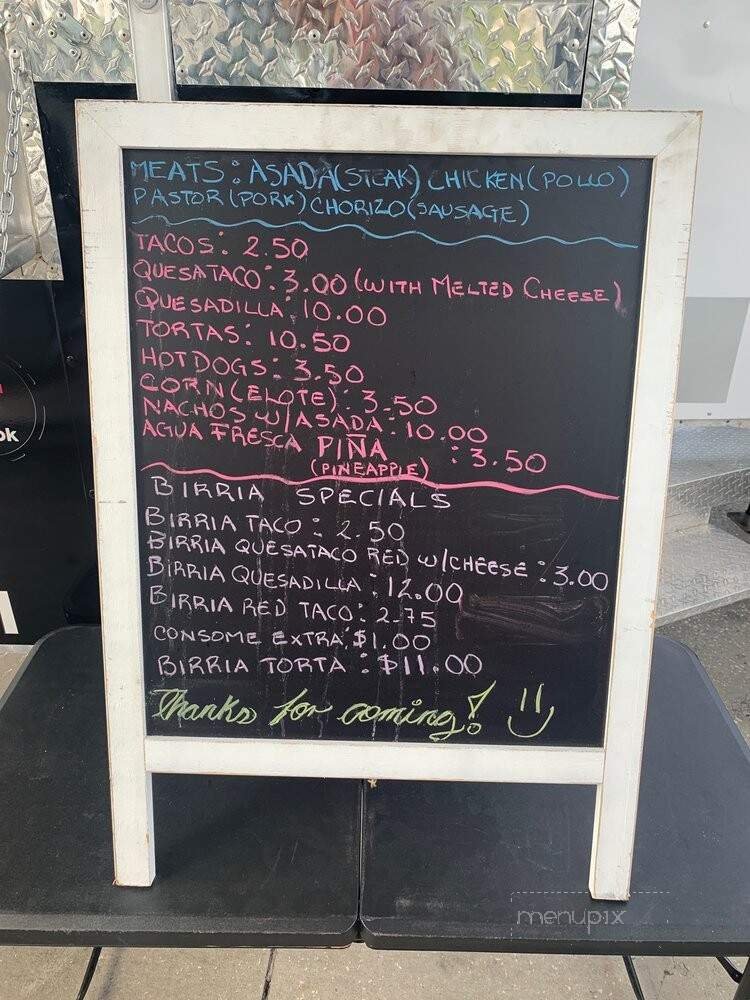 MEATS: ASADA(STEAK) CHICKEN(POLLO)
PASTOR(PORK) CHORIZO(SAUSAGE)
TACOS: 2.50
QUESATACO: 3.00 (WITH MELTED CHEESE)
QUESADILLA: 10.00
TORTAS: 10.50
HOTDOGS: 3.50
CORN(ELOTE): 3.50
NACHOS W/ASADA: 10.00
AGUA FRESCA PIÑA : 3.50
(PINEAPPLE)
BIRRIA SPECIALS
BIRRIA TACO: 2.50
BIRRIA QUESATACO RED W/CHEESE: 3.00
BIRRIA QUESADILLA: 12.00
BIRRIA RED TACO: 2.75
CONSOME EXTRA: $1.00
BIRRIA TORTA: $11.00
Thanks for coming!
ok
menupix